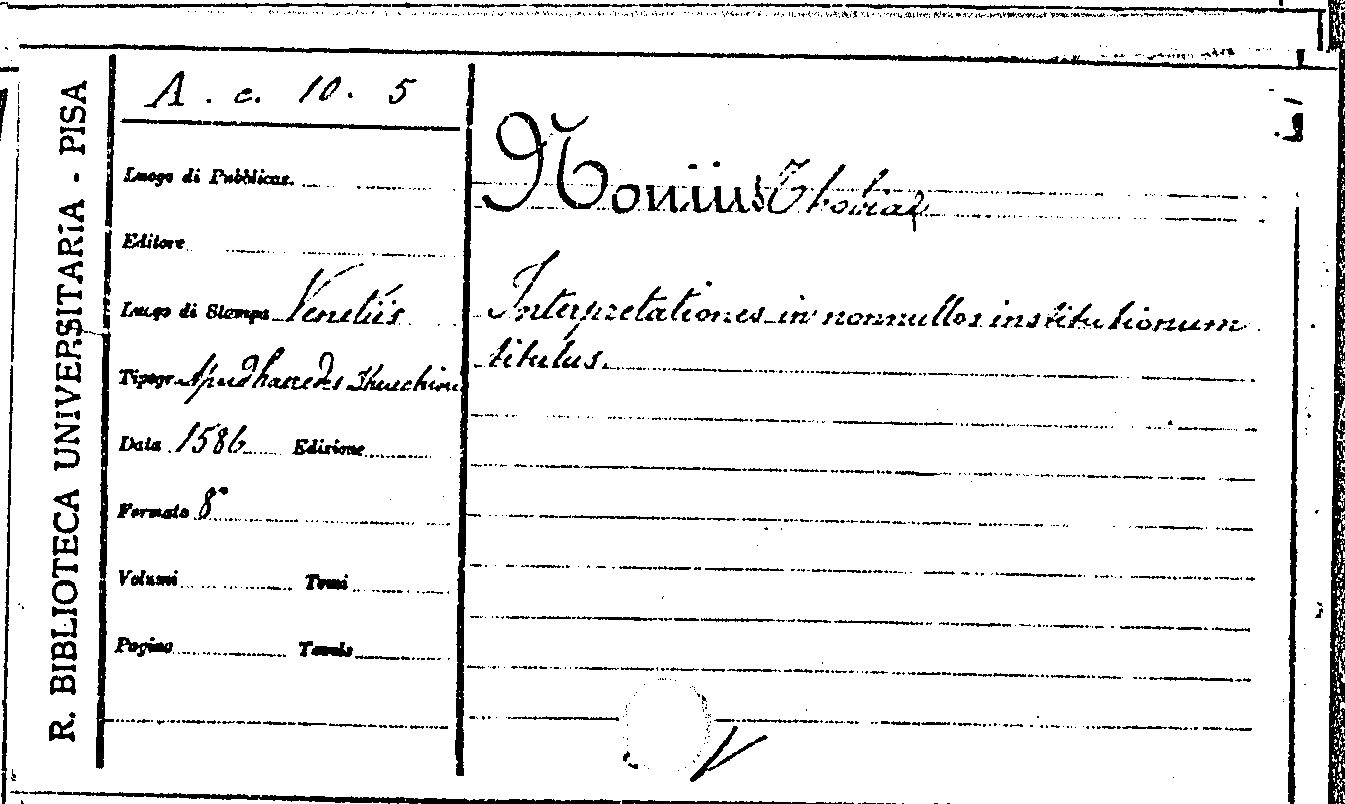 R. BIBLIOTECA UNIVERSITARIA - PISA
A. c. 10. 5
Luogo di Pubblicaz.
Editore
Luogo di Stampa Venetiis
Tipogr. Apud haeredes
Data 1586 Edizione
Formato 8°
Volumi Tomi
Pagine Tavole
Nonius
Interpretationes in nonnullos institutionum
titulus.